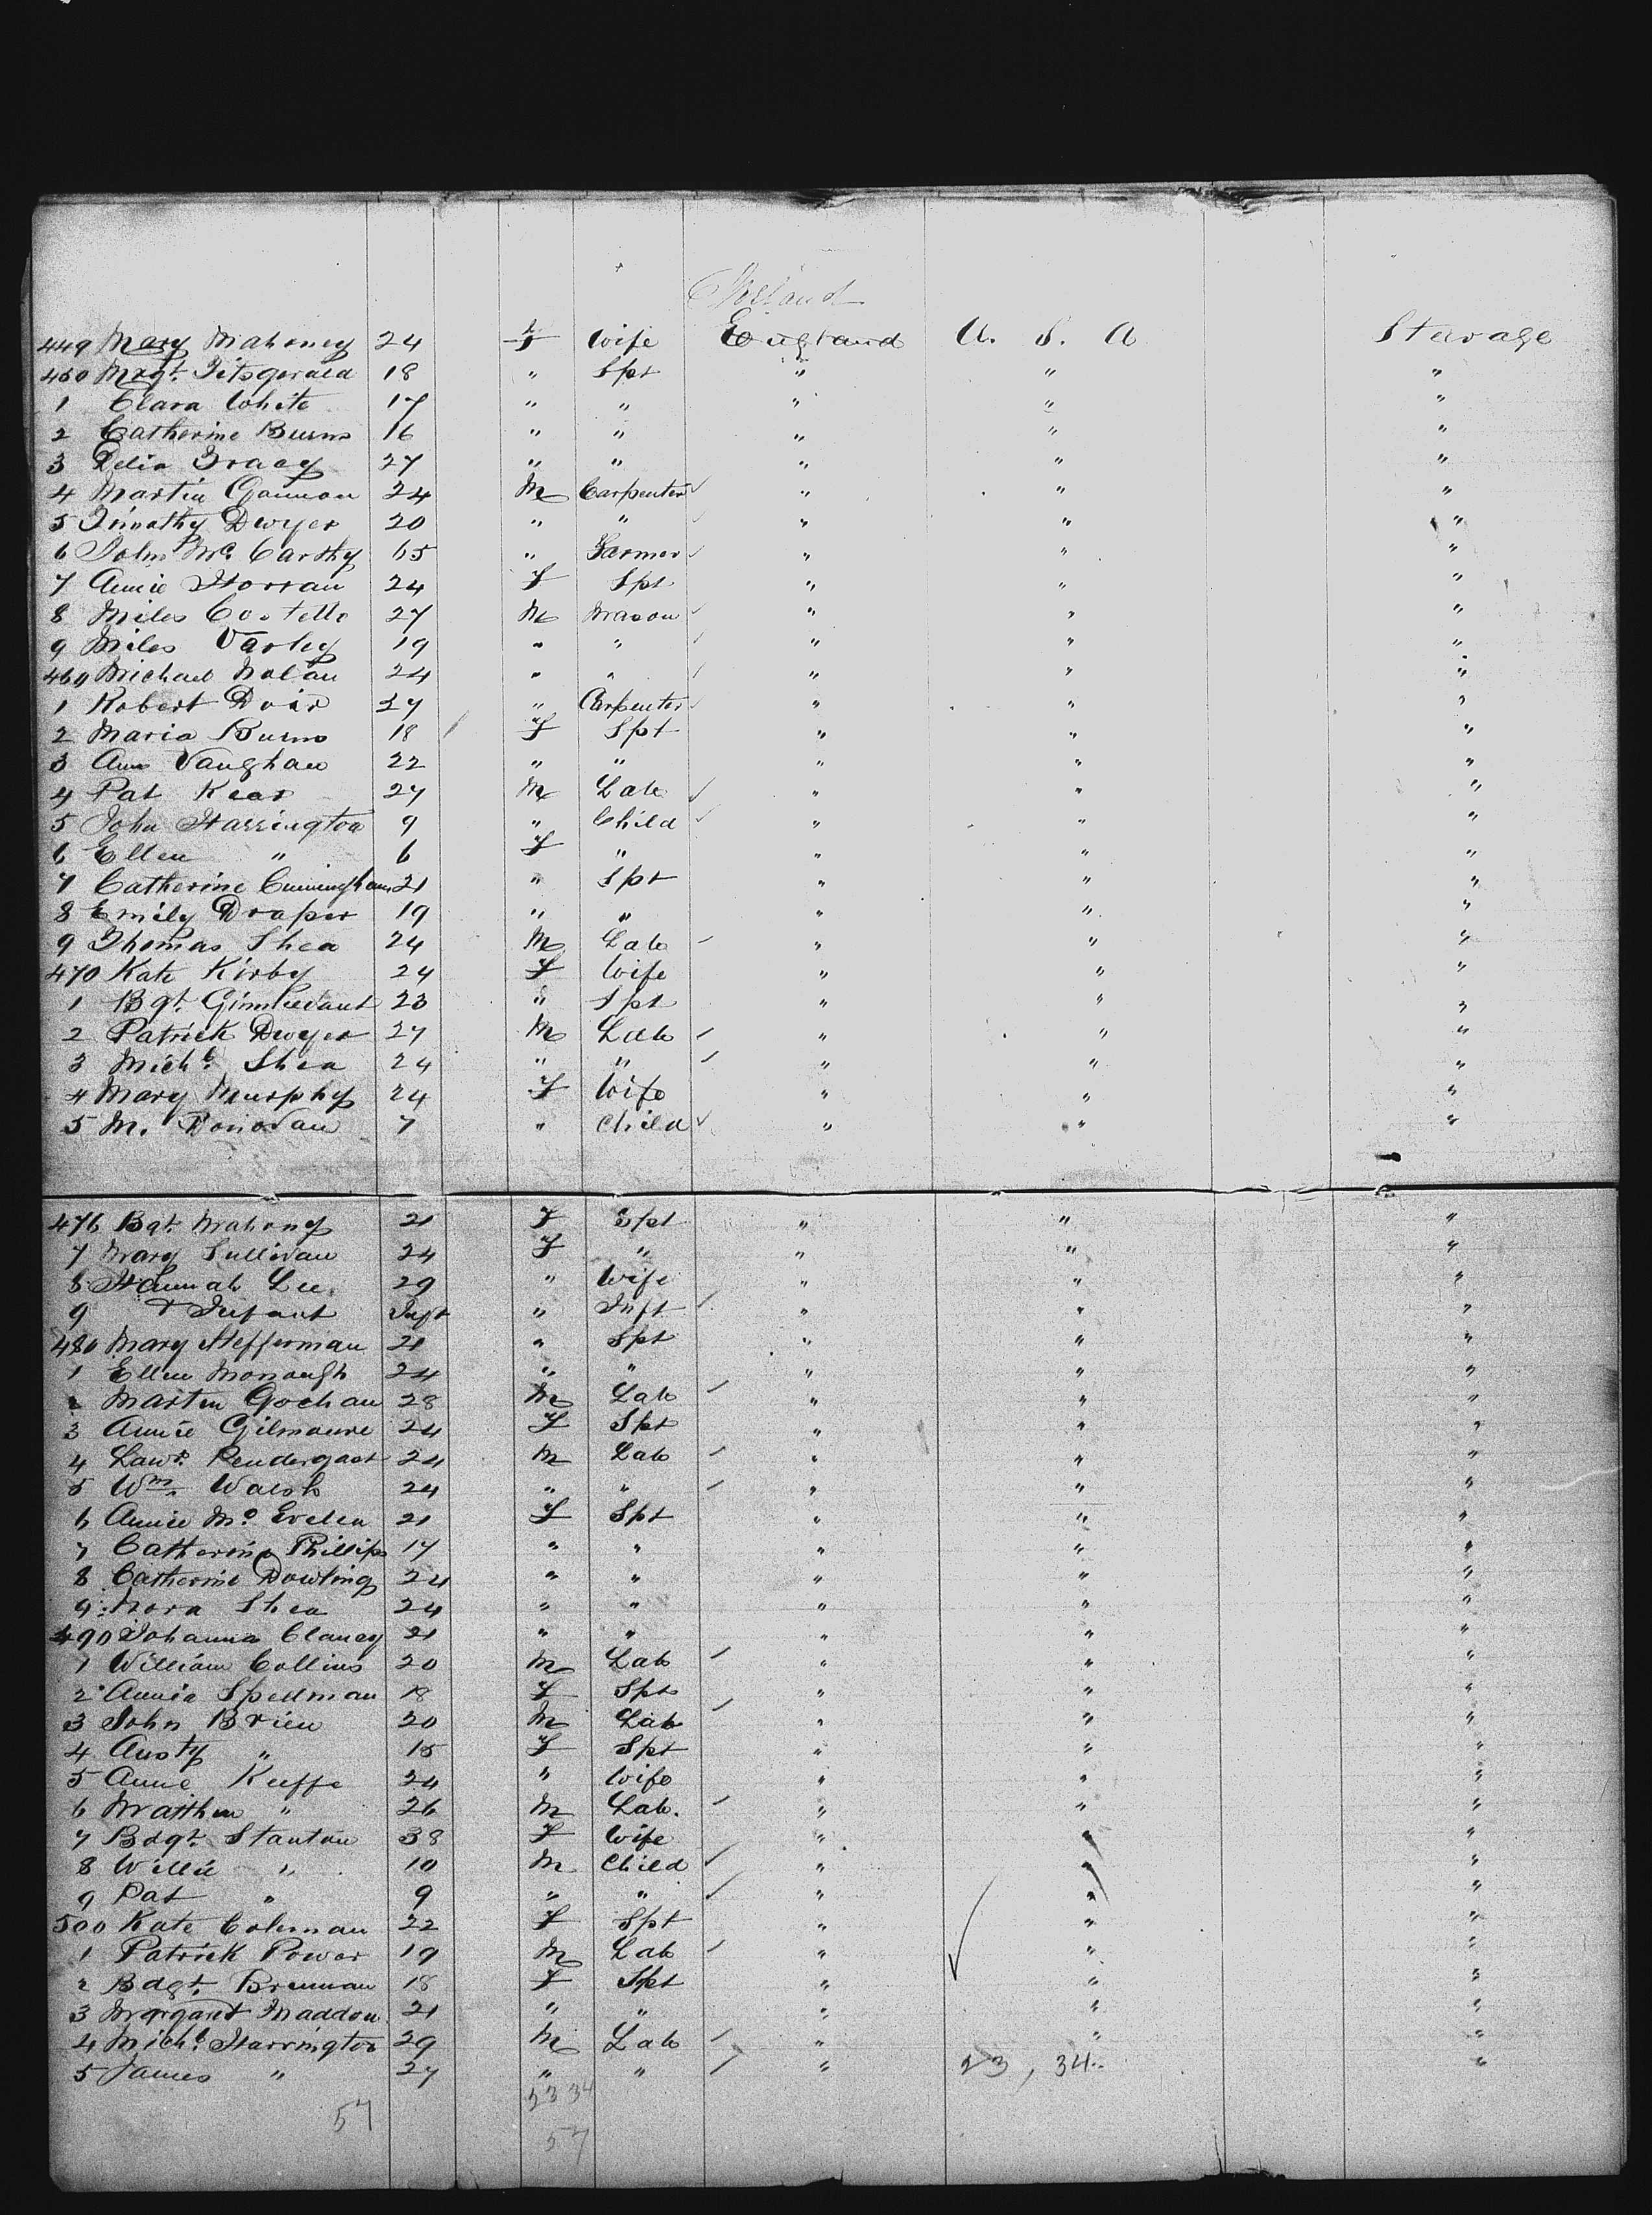 Ireland
449 Mary Mahoney 24 F Wife England U. S. A Steerage
450 Mrgt. Fitsgerald 18 " Spt " " "
1 Clara White 17 " " " " "
2 Catherine Burns 16 " " " " "
3 Delia Tracy 27 " " " " "
4 Martin Gannon 24 M Carpenter ✓ " " "
5 Timothy Dwyer 20 " " ✓ " " "
6 John Mc. Carthy 65 " Farmer ✓ " " "
7 Annie Horran 24 F Spt " " "
8 Miles Costello 27 M Mason ✓ " " "
9 Miles Varley 19 " " ✓ " " "
460 Michael Nolan 24 " " ✓ " " "
1 Robert Doir 27 " Carpenter ✓ " " "
2 Maria Burns 18 F Spt " " "
3 Ann Vaughan 22 " " " " "
4 Pat Kear 27 M Lab ✓ " " "
5 John Harrington 9 " Child ✓ " " "
6 Ellen " 6 F " " " "
7 Catherine Cunningham 21 " Spt " " "
8 Emily Draper 19 " " " " "
9 Thomas Shea 24 M Lab ✓ " " "
470 Kate Kirby 24 F Wife " " "
1 Bgt. 23 " Spt " " "
2 Patrick Dwyer 27 M Lab ✓ " " "
3 Michl. Shea 24 " " ✓ " " "
4 Mary Murphy 24 F Wife " " "
5 M. Donovan 7 " Child ✓ " " "
476 Bgt. Mahony 21 F Spt " " "
7 Mary Sullivan 24 F " " " "
8 Hannah Lee 29 " Wife " " "
9 + Infant Inft " Inft ✓ " " "
480 Mary Hefferman 21 " Spt " " "
1 Ellen Monough 24 " " " " "
2 Martin Gochan 28 M Lab ✓ " " "
3 Annie Gilmoure 24 F Spt " " "
4 Lawr. Pendergast 24 M Lab ✓ " " "
5 Wm. Walsh 24 " " ✓ " " "
6 Annie Mc. Evelea 21 F Spt " " "
7 Catherine Phillips 17 " " " " "
8 Catherine Dowling 24 " " " " "
9 Nora Shea 24 " " " " "
490 Johanna Clancy 21 " " " " "
1 William Collins 20 M Lab ✓ " " "
2 Annie Spellman 18 F Spt " " "
3 John Brien 20 M Lab ✓ " " "
4 Austy " 15 F Spt " " "
5 Anne Keeffe 24 " Wife " " "
6 Matthew " 26 M Lab. ✓ " " "
7 Bdgt. Stanton 38 F Wife " " "
8 Willie " 10 M Child ✓ " " "
9 Pat " 9 " " ✓ " " "
500 Kate Coleman 22 F Spt " " "
1 Patrick Power 19 M Lab ✓ " " "
2 Bdgt. Brennan 18 F Spt " " "
3 Margaret Maddon 21 " " " " "
4 Michl. Harrington 29 M Lab ✓ " " "
5 James " 27 " " ✓ " 23, 34 "
23 34
57 57